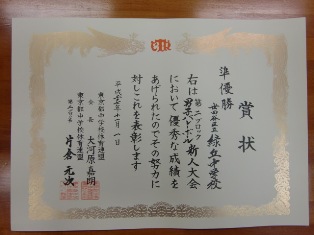 賞状
準優勝
世田谷区立 緑丘中学校
右は第二ブロック
男子バレーボール新人大会
において優秀な成績を
あげられたのでその努力に
対しこれを表彰します
平成 年十一月 一日
東京都中学校体育連盟
会長 大河原嘉朗
東京都中学校体育連盟
片倉元次